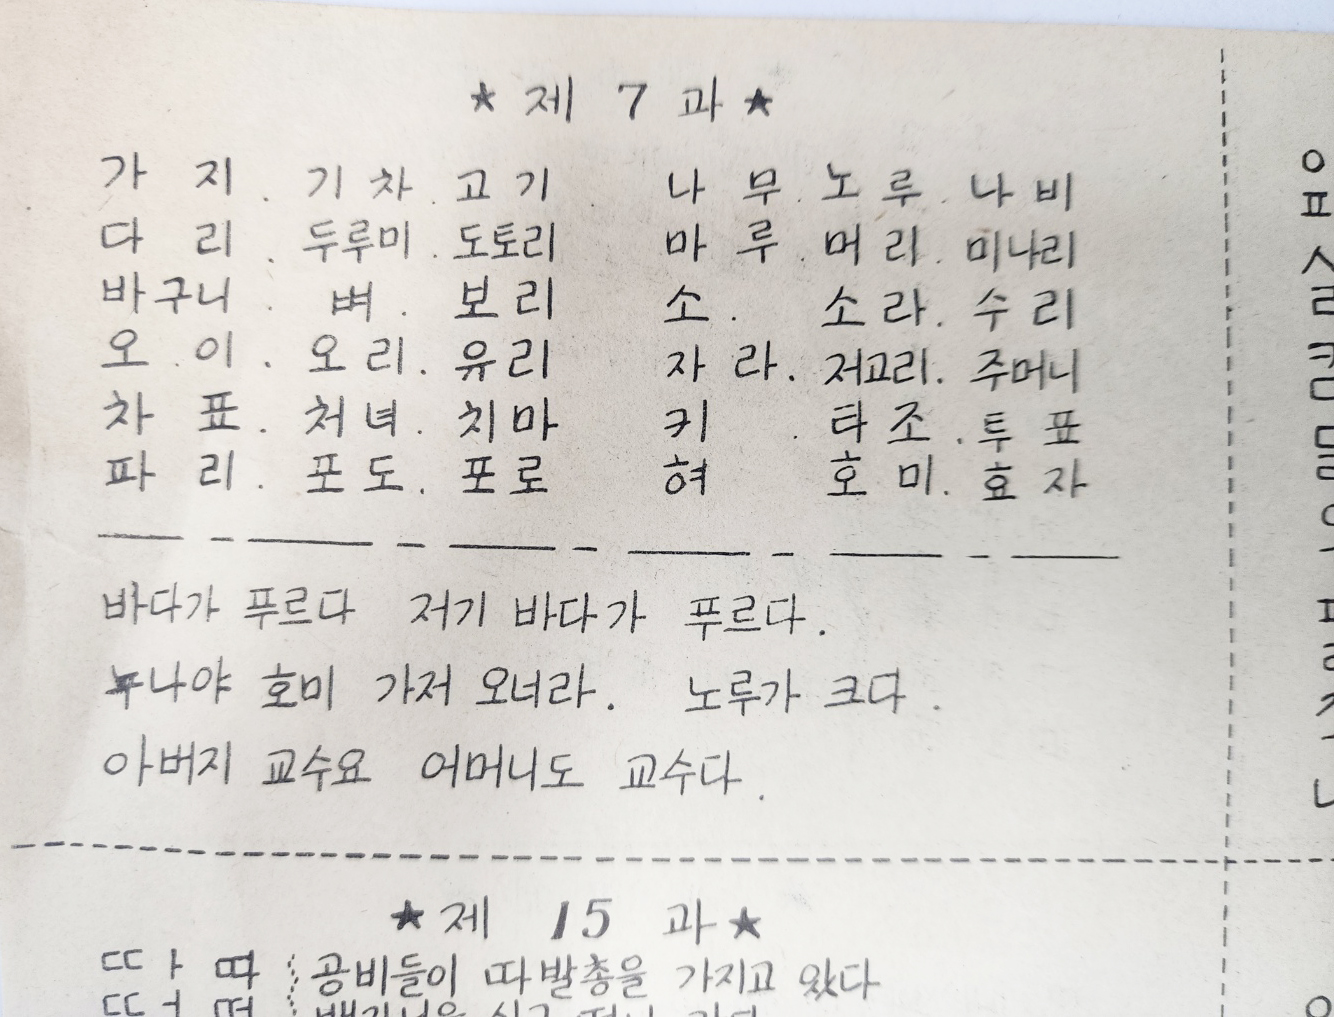 ★ 제 7 과 ★
가 지 . 기 차 . 고 기 나 무 . 노 루 . 나 비
다 리 . 두루미 . 도토리 마 루 . 머 리 . 미나리
바구니 . 벼 . 보 리 소 . 소 라 . 수 리
오 이 . 오 리 . 유 리 자 라 . 저고리 . 주머니
차 표 . 처 녀 . 치 마 키 . 타 조 . 투 표
파 리 . 포 도 . 포 로 혀 호 미 . 효 자
바다가 푸르다 저기 바다가 푸르다.
누나야 호미 가저 오너라. 노루가 크다.
아버지 교수요 어머니도 교수다.
★ 제 15 과 ★
ㄸ ㅏ 따 공비들이 따발총을 가지고 왔다
ㄸ ㅓ 떠